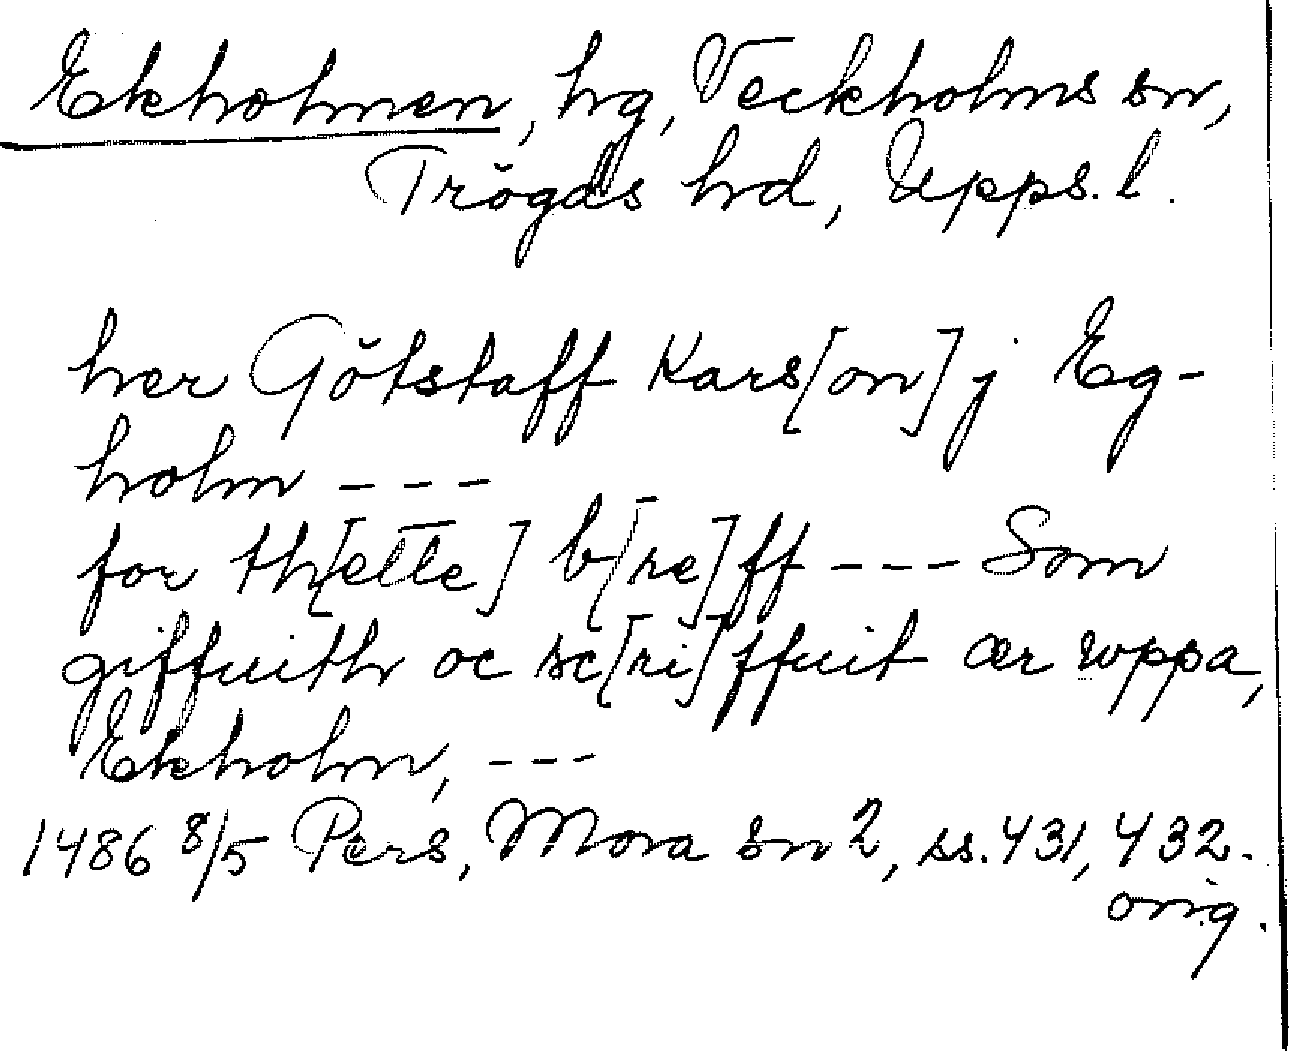 Ekholmen, hg, Veckholms sn,
Trögds hrd, Upps. l.
her Götstaff Kars[on] j Eg-
holm ---
for th[ette] b[re]ff --- Som
giffuith oc sc[ri]ffuit ær wppa,
Ekholm, ---
1486 8/5 Pers, Mora sn 2, ss. 431, 432.
orig.